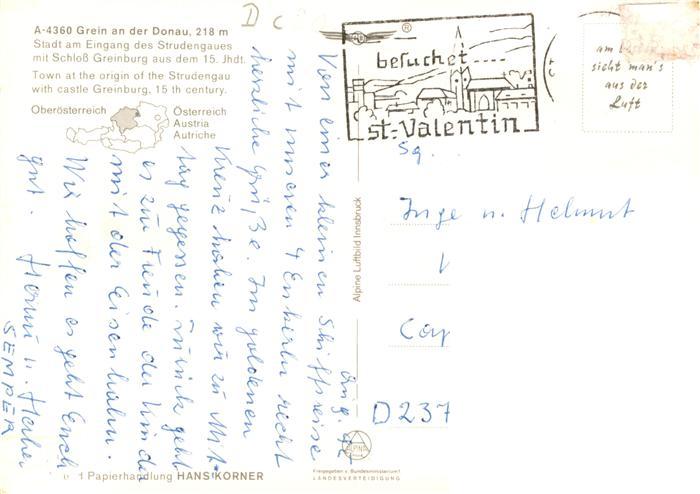 A-4360 Grein an der Donau, 218 m
Stadt am Eingang des Strudengaues
mit Schloß Greinburg aus dem 15. Jhdt.
Town at the origin of the Strudengau
with castle Greinburg, 15 th century.
Oberösterreich
Österreich
Austria
Autriche
D C
besuchet
st.-Valentin
am
sieht man's
aus der
Luft
Aug.
Von einer kleinen Schiffsreise
mit unseren 4 Enkerln recht
herzliche Grüße. Im goldenen
Kreuz haben wir zu Mit-
tag gegessen. zurück geht
es zur Freude der Kinder
mit der Eisenbahn.
Wir hoffen es geht Euch
gut.
SEMPER
Inge u. Helmut
D 237
Alpine Luftbild Innsbruck
ALPINE
Papierhandlung HANS KÖRNER
Freigegeben v. Bundesministerium f.
LANDESVERTEIDIGUNG